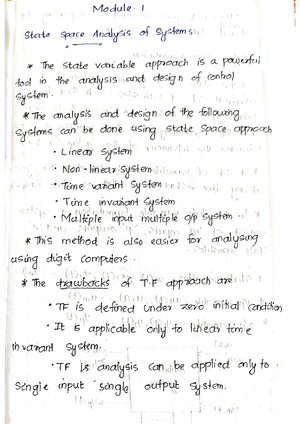 Module - 1
State Space Analysis of Systems
* The state variable approach is a powerful
tool in the analysis and design of control
system.
* The analysis and design of the following
systems can be done using state space approach
· Linear System
· Non-linear System
· Time variant System
· Time invariant System
· Multiple input multiple o/p system
* This method is also easier for analysing
using digit computers.
* The drawbacks of T.F approach are
· TF is defined under zero initial condition
· It is applicable only to linear time
invariant System.
· TF analysis can be applied only to
Single input single output System.